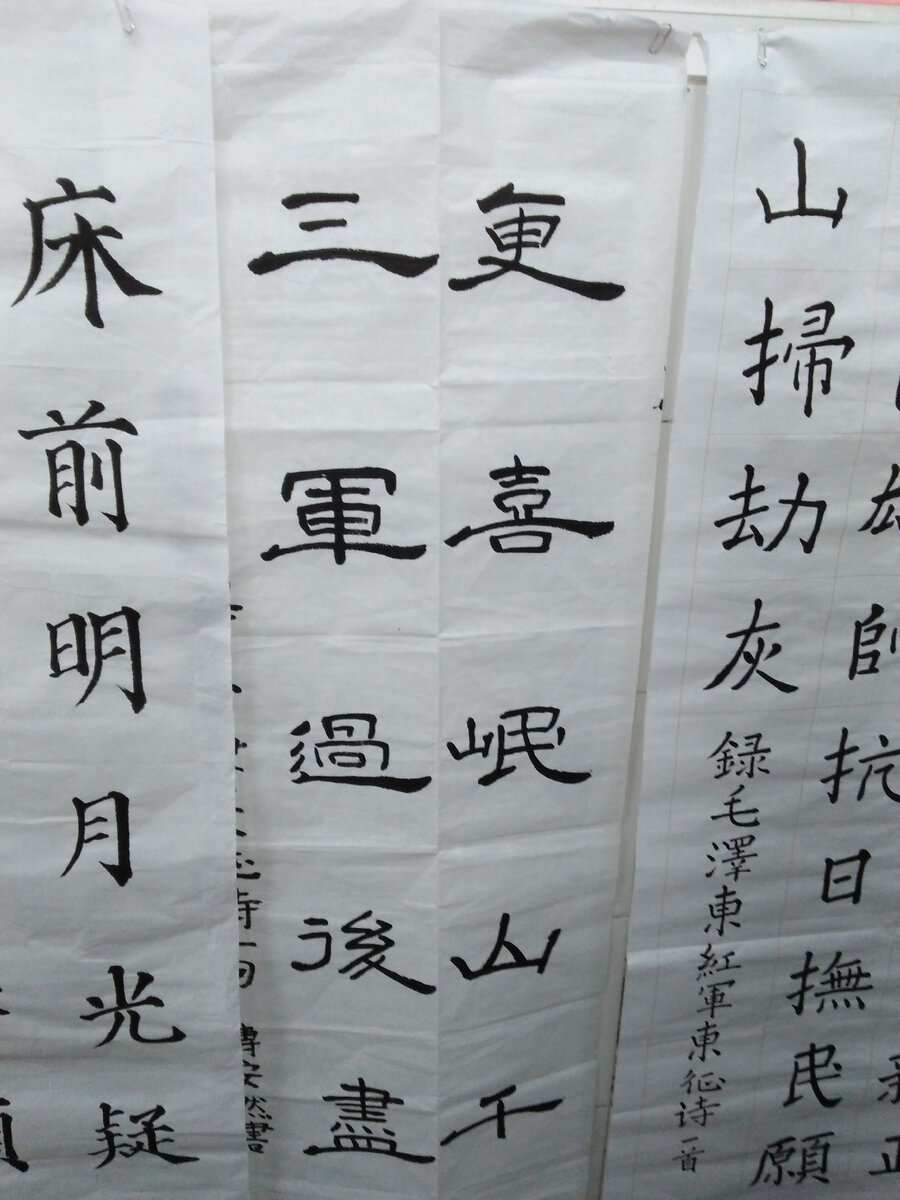 師抗日撫民願
山掃劫灰
録毛澤東紅軍東征诗一首
更喜岷山千
三軍過後盡
诗一首 傅安然書
床前明月光疑